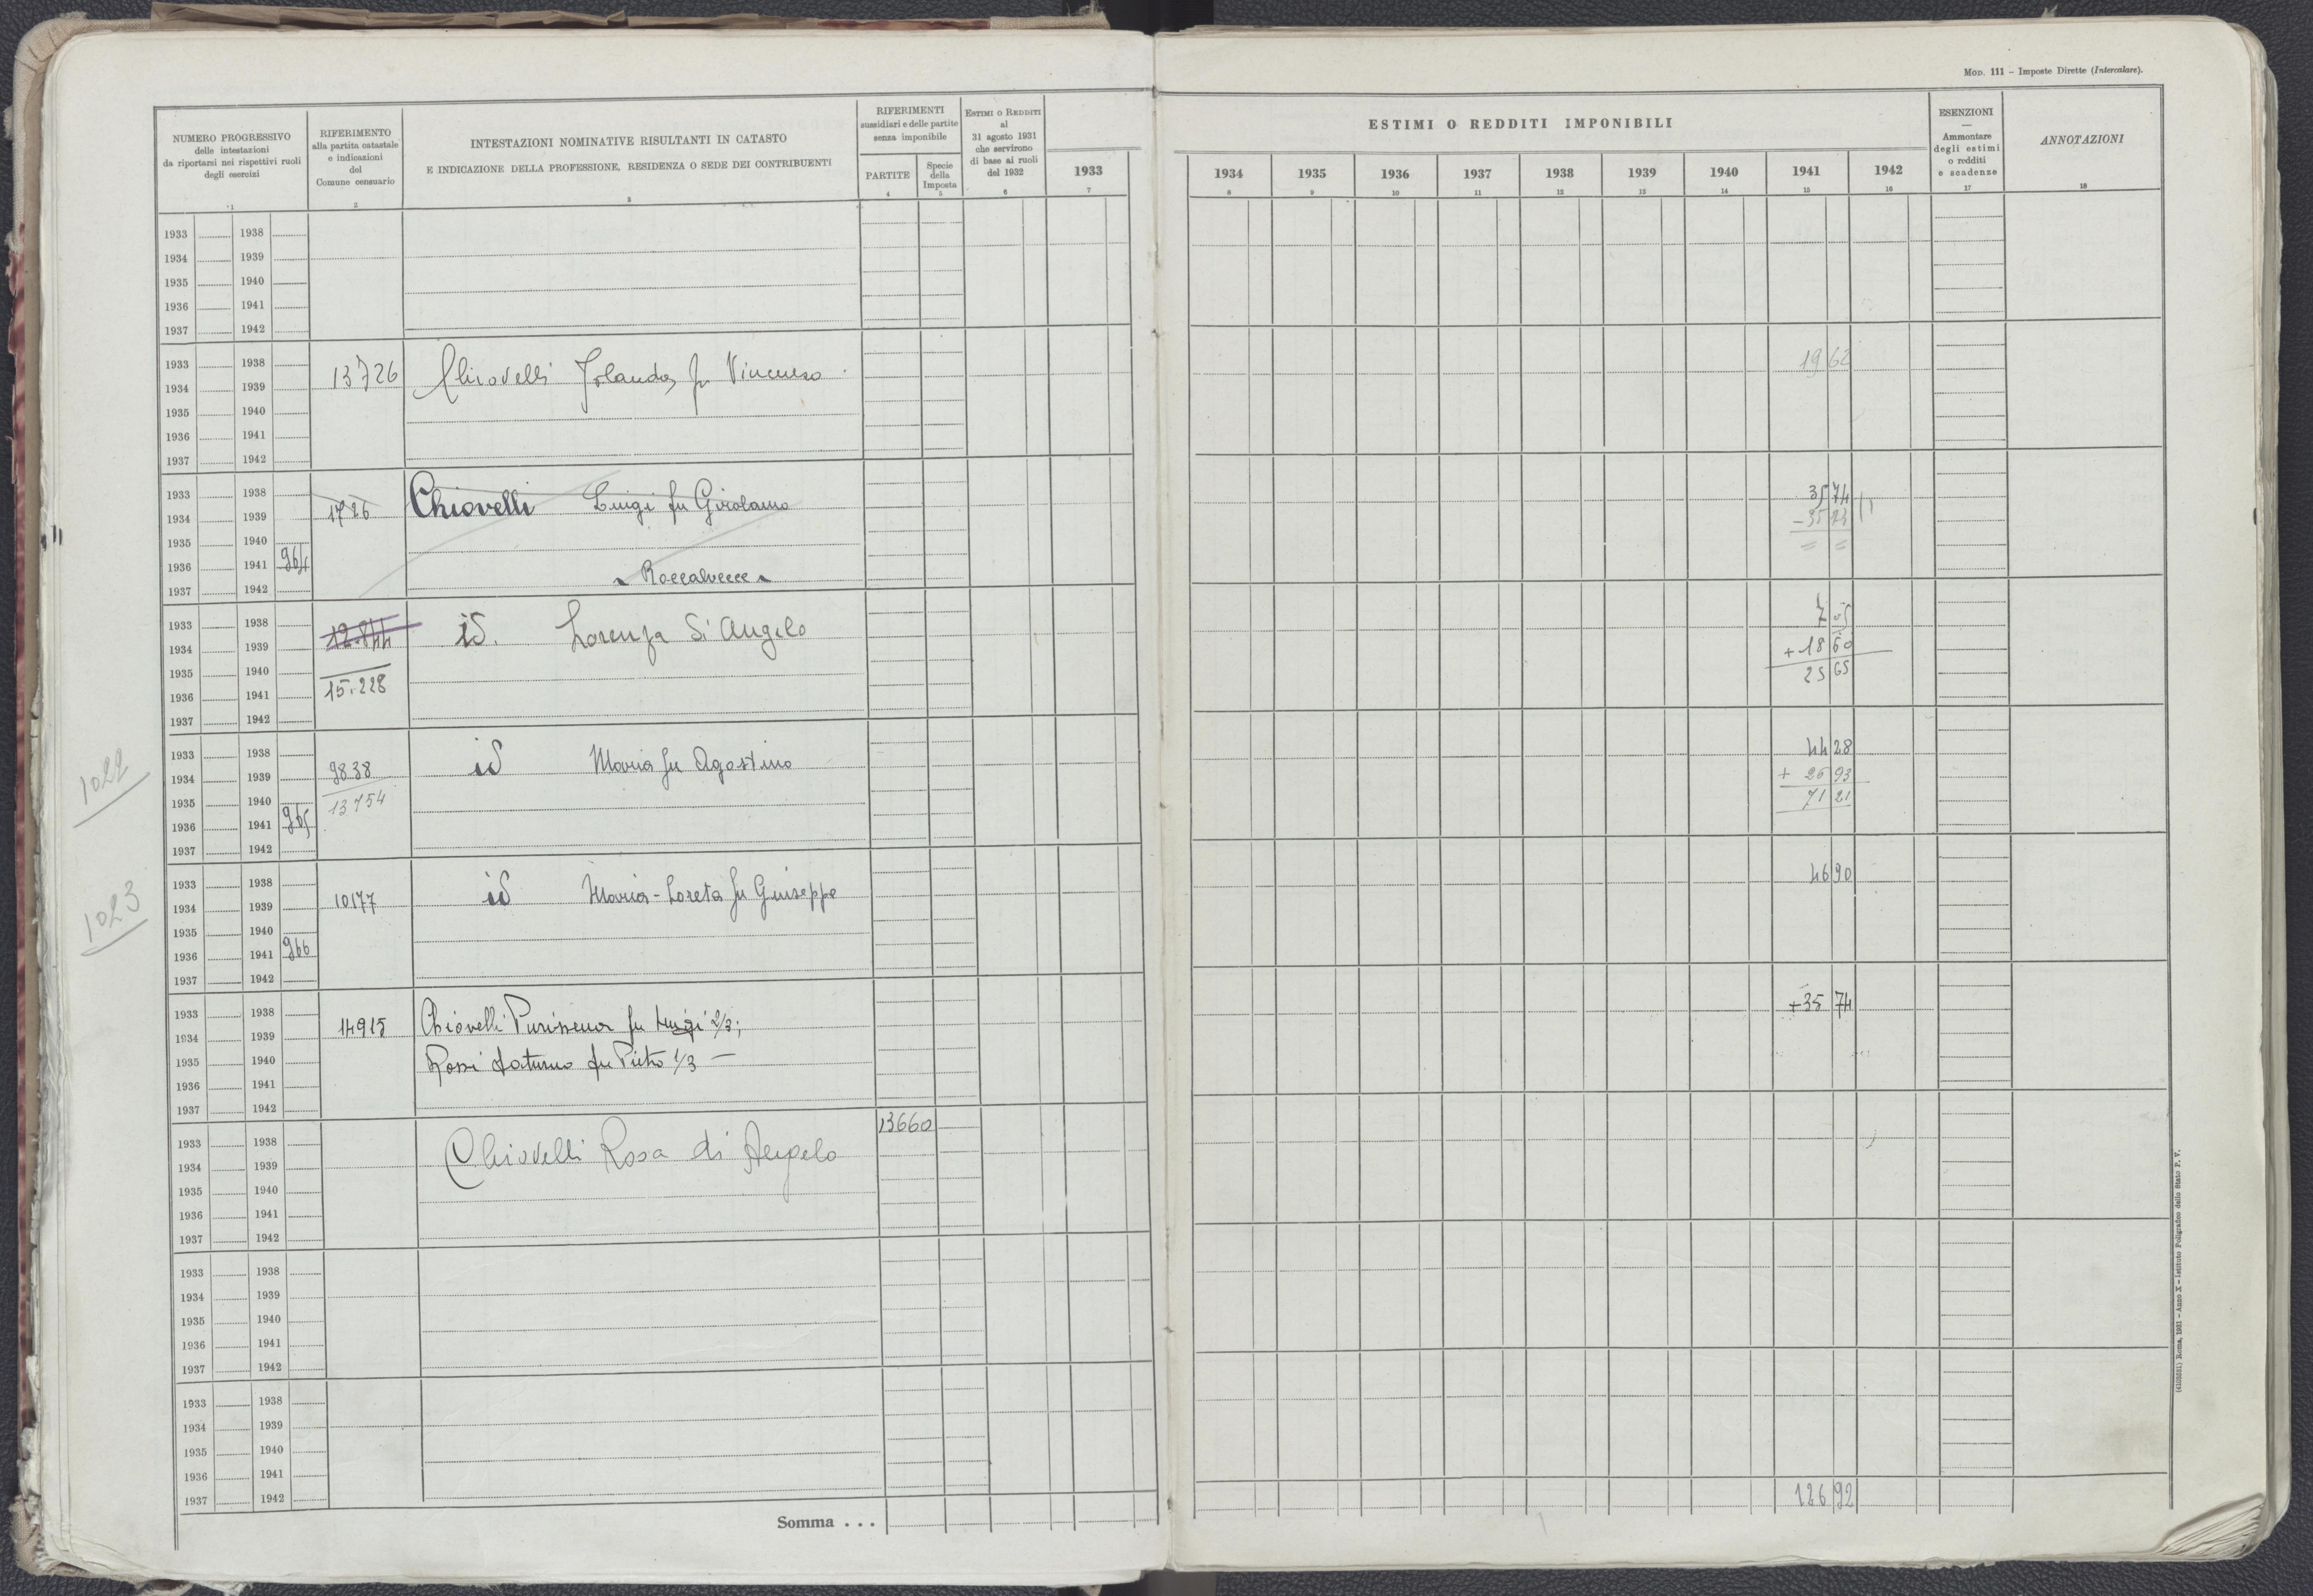 MOD. 111 – Imposte Dirette (Intercalare).
NUMERO PROGRESSIVO
delle intestazioni
da riportarsi nei rispettivi ruoli
degli esercizi
1
RIFERIMENTO
alla partita catastale
e indicazioni
del
Comune censuario
2
INTESTAZIONI NOMINATIVE RISULTANTI IN CATASTO
E INDICAZIONE DELLA PROFESSIONE, RESIDENZA O SEDE DEI CONTRIBUENTI
3
RIFERIMENTI
sussidiari e delle partite
senza imponibile
PARTITE
4
Specie
della
Imposta
5
ESTIMI O REDDITI
al
31 agosto 1931
che servirono
di base ai ruoli
del 1932
6
1933
7
ESTIMI O REDDITI IMPONIBILI
1934 1935 1936 1937 1938 1939 1940 1941 1942
8 9 10 11 12 13 14 15 16
ESENZIONI
—
Ammontare
degli estimi
o redditi
e scadenze
17
ANNOTAZIONI
18
1933 1938
1934 1939
1935 1940
1936 1941
1937 1942
1933 1938
1934 1939 13726 Chiovelli Jolanda fu Vincenzo 19 62
1935 1940
1936 1941
1937 1942
1933 1938 35 74
1934 1939 1726 Chiovelli Luigi fu Girolamo
1935 1940 = =
1936 1941 964
1937 1942 Roccalvecce
1933 1938 7 05
1934 1939 12.844 id. Lorenza di Angelo + 18 60
1935 1940 25 65
1936 1941 15.228
1937 1942
1022
1933 1938 44 28
1934 1939 9838 id Maria fu Agostino + 26 93
1935 1940 13754 71 21
1936 1941 965
1937 1942
1023
1933 1938 46 90
1934 1939 10177 id Maria-Loreta fu Giuseppe
1935 1940
1936 1941 966
1937 1942
1933 1938 +35 74
1934 1939 14915 Chiovelli Purissima fu Luigi 2/3;
1935 1940 Rossi Saturno fu Pietro 1/3 —
1936 1941
1937 1942
13660
1933 1938
1934 1939 Chiovelli Rosa di Angelo
1935 1940
1936 1941
1937 1942
1933 1938
1934 1939
1935 1940
1936 1941
1937 1942
1933 1938
1934 1939
1935 1940
1936 1941
1937 1942
Somma . . . 126 92
Roma, 1931 – Anno X – Istituto Poligrafico dello Stato P. V.